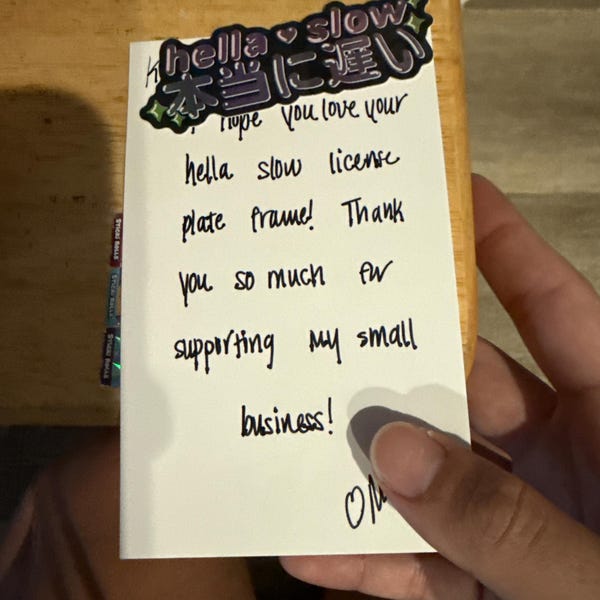 hella ♥ slow
本当に遅い
I hope you love your
hella slow license
plate frame! Thank
you so much for
supporting my small
business!
♡ M
STICKI ROLLS
STICKI ROLLS
STICKI ROLLS